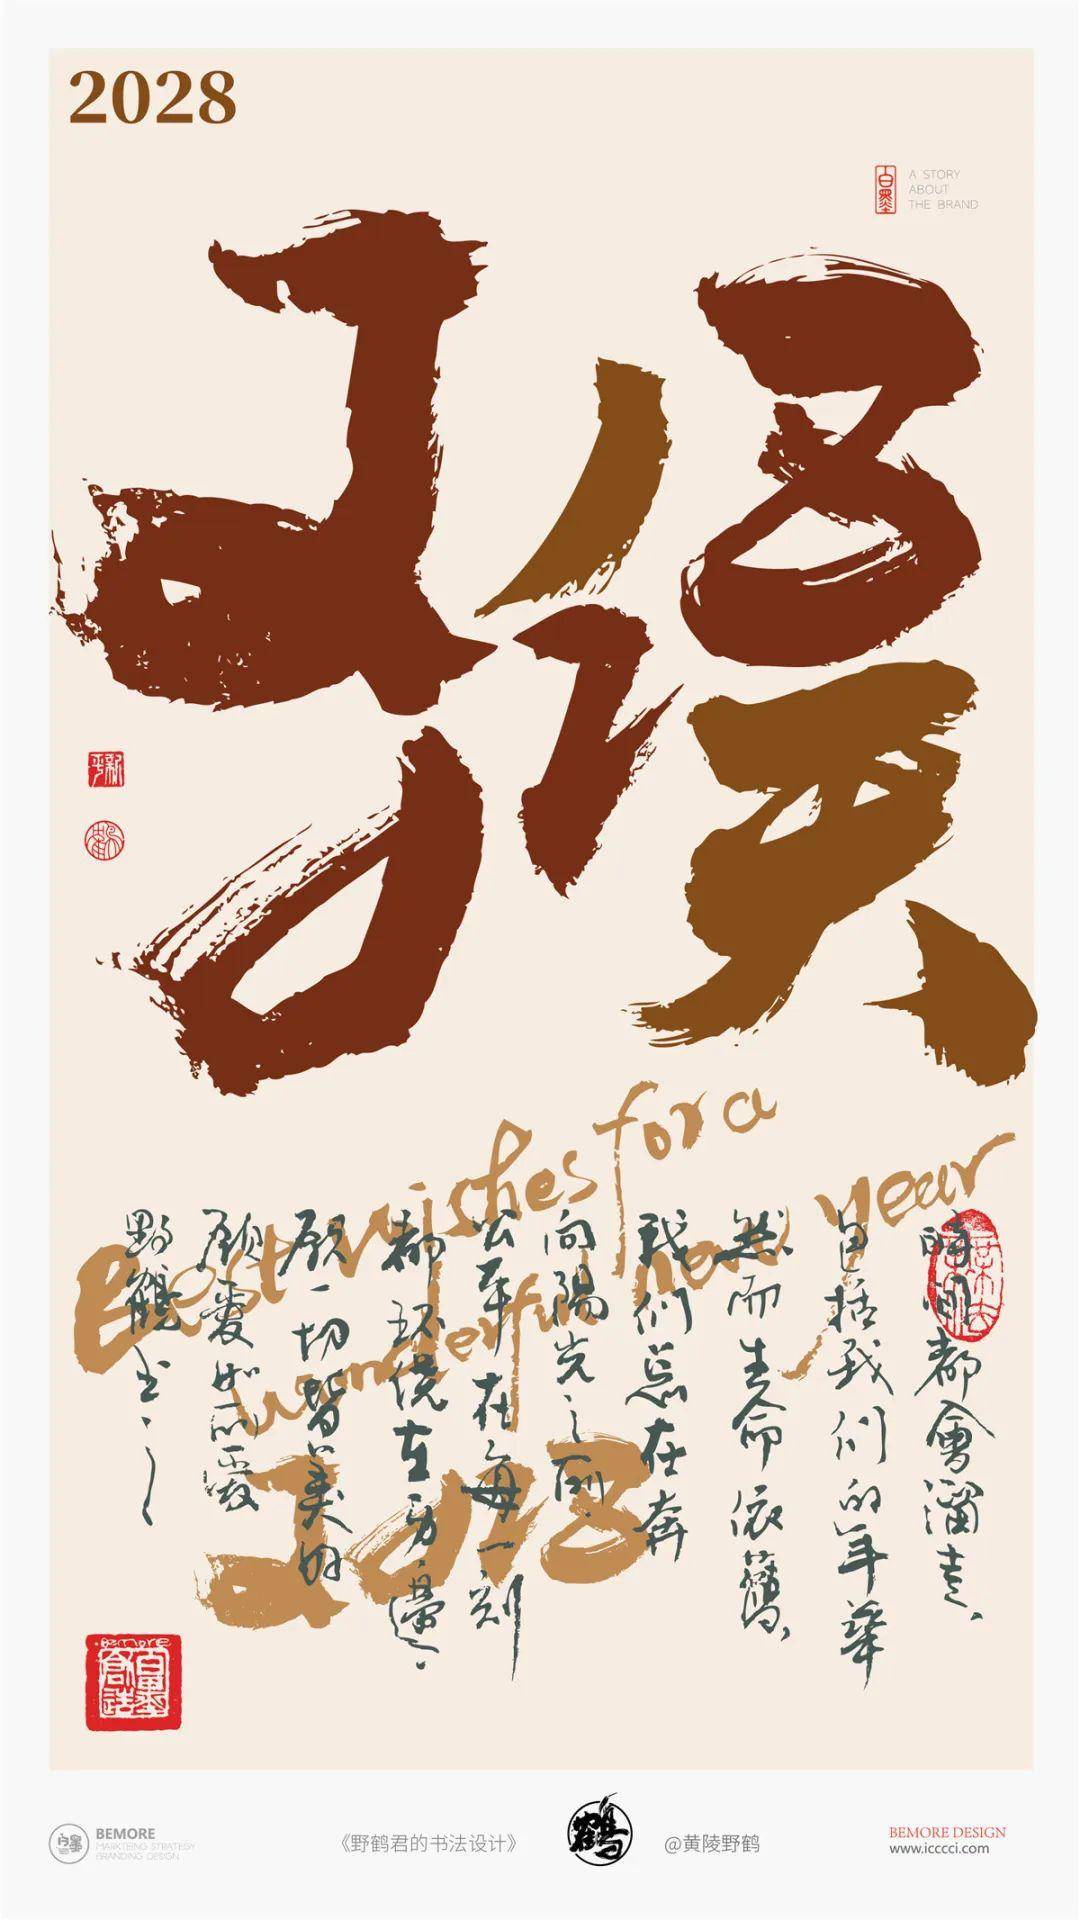 2028
A STORY
ABOUT
THE BRAND
Best wishes for a
wonderful new year
2028
時间都會溜走、
包括我们的年華
然而生命依舊、
我们总在奔
向陽光之前、
在每一刻
都环绕在身邊、
願一切皆美好
願愛如所愛
野鶴
bemore
BEMORE
MARKTEING STRATEGY
BRANDING DESIGN
《野鹤君的书法设计》
鹤
@黄陵野鹤
BEMORE DESIGN
www.icccci.com